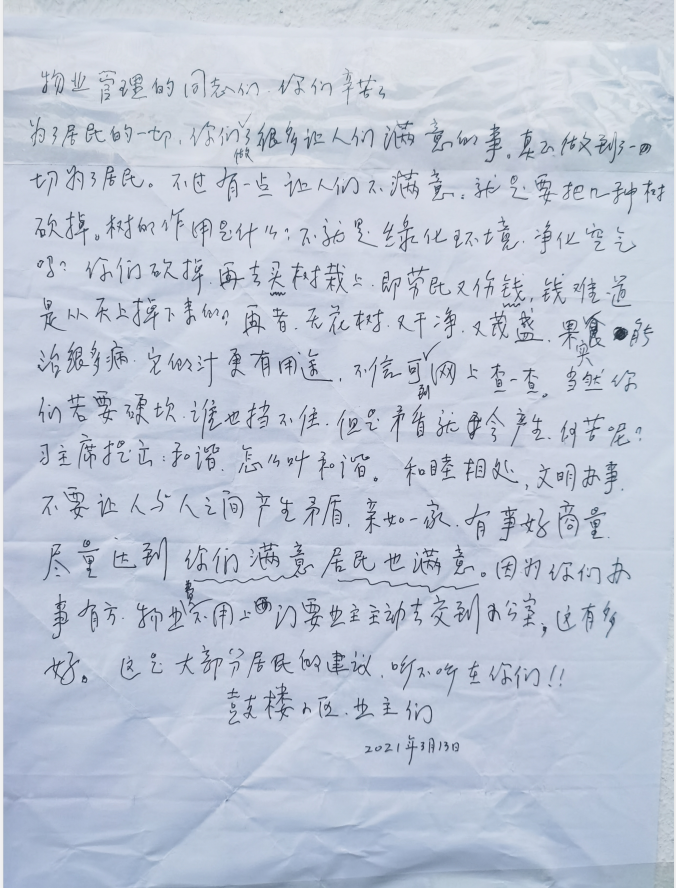 物业管理的同志们.你们辛苦了
为了居民的一切,你们做了很多让人们满意的事。真正做到了一
切为了居民。不过有一点让人们不满意。就是要把几种树
砍掉。树的作用是什么?不就是绿化环境.净化空气
吗?你们砍掉.再去买树栽上.即劳民又伤钱,钱难道
是从天上掉下来的?再者.无花树.又干净.又茂盛.果实能
治很多病.它的汁更有用途.不信可到网上查一查。当然你
们若要硬坎.谁也挡不住.但是矛盾就会产生.何苦呢?
习主席提出:和谐.怎么叫和谐。和睦相处,文明办事.
不要让人与人之间产生矛盾,亲如一家.有事好商量.
尽量达到你们满意居民也满意。因为你们办
事有方.物业费不用上门要业主主动去交到办公室,这有多
好。这是大部分居民的建议.听不听在你们!!
鼓楼小区.业主们
2021年3月13日